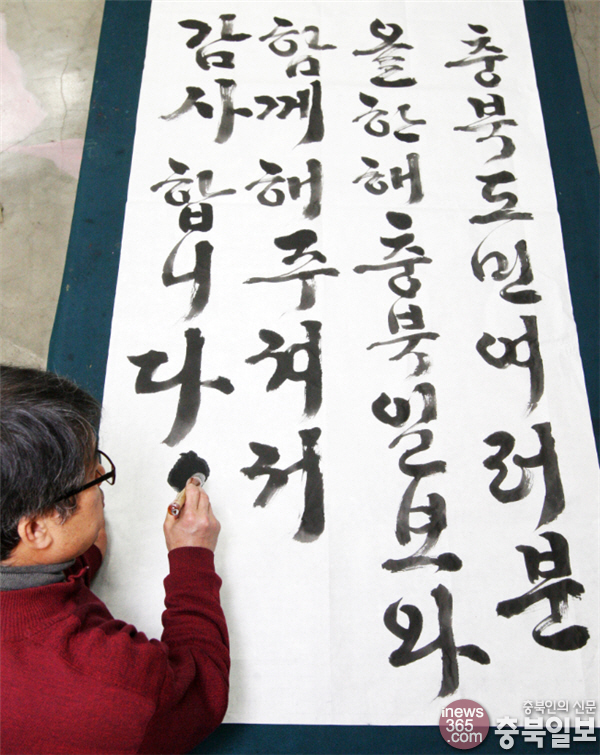 충북도민여러분
올한해충북일보와
함께해주셔서
감사합니다
충북인의 신문
inews
365.com
충북일보